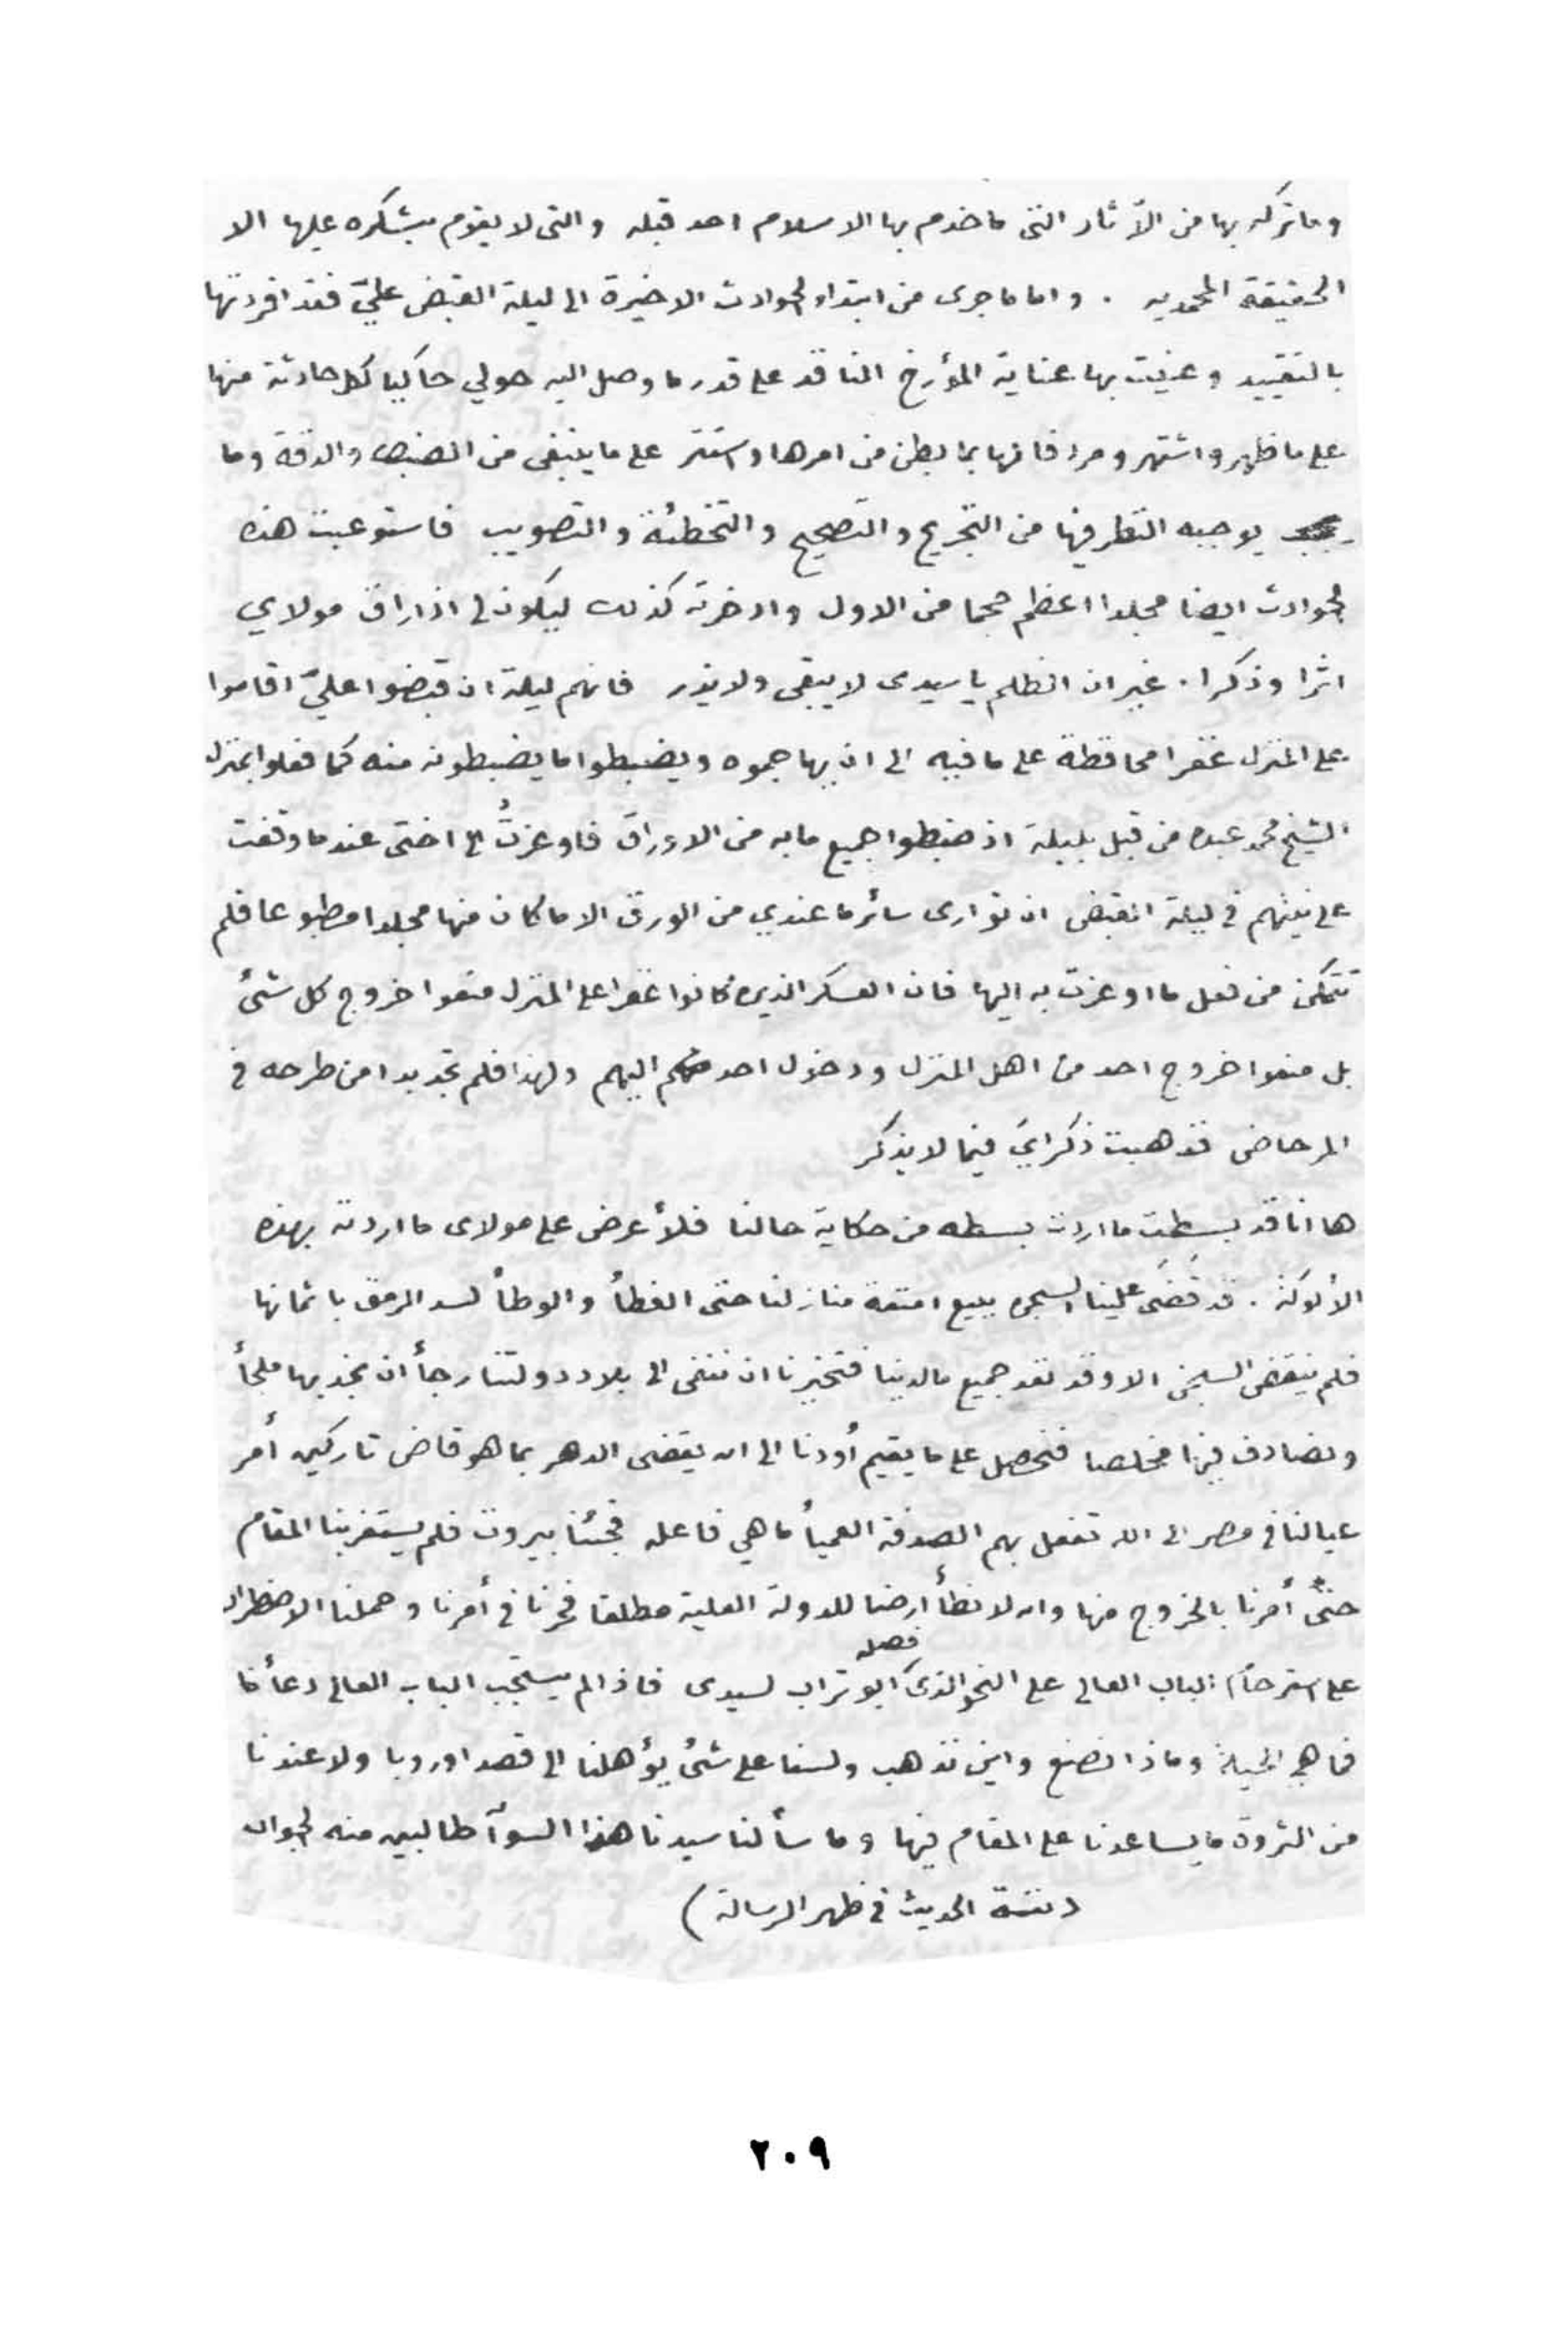 وما تركه بها من الآثار التى ما خدم بها الاسلام احد قبله والتى لا يقوم بشكره عليها الا
الحقيقة المحمديه . واما ما جرى من ابتداء الحوادث الاخيرة الى ليلة القبض عليّ فقد افردتها
بالتقييد وعنيت بها عناية المؤرخ الناقد على قدر ما وصل اليه حولي حاكيا كل حادثة منها
على ما ظهر واشتهر ومردفا لها بما بطن من امرها واستتر على ما ينبغى من الضبط والدقة وما
يوجبه النظر فيها من التجريح والتصحيح والتخطئة والتصويب فاستوعبت هذه
الحوادث ايضا مجلدا اعظم حجما من الاول وادخرته كذلك ليكون لى اذا راق مولاي
اثرا وذكرا . غير ان الظلم يا سيدى لا يبقى ولا يذر فانهم ليلة ان قبضوا عليّ اقاموا
على المنزل غفرا محافظة على ما فيه الى ان يهاجموه ويضبطوا ما يضبطونه منه كما فعلوا بمنزل
الشيخ محمد عبده من قبل بليلة اذ ضبطوا جميع ما به من الاوراق فاوعزتُ الى اختى عندما وقفت
على نيتهم فى ليلة القبض ان توارى سائر ما عندي من الورق الا ما كان منها مجلدا مطبوعا فلم
تتمكن من فعل ما اوعزت به اليها فان العسكر الذين كانوا غفرا على المنزل منعوا خروج كل شئ
بل منعوا خروج احد من اهل المنزل ودخول احد اليهم ولهذا فلم تجد بدا من طرحه فى
المرحاض فذهبت ذكراي فيما لا يذكر
ها انا قد بسطت ما اردت بسطه من حكاية حالنا فلأعرض على مولاى ما اردته بهذه
الألوكة . قد قضى علينا السجن ببيع امتعة منازلنا حتى الغطأ والوطأ لسد الرمق باثمانها
فلم ينقض السجن الا وقد نفد جميع ما لدينا فتخيرنا ان ننفى الى بلاد دولتنا رجأ ان نجد بها ملجأ
ونصادف فيها مخلصا فنحصل على ما يقيم أودنا الى ان يقضى الدهر بما هو قاض تاركين أمر
عيالنا فى مصر الى ان تفعل بهم الصدفة العميأ ما هي فاعله فجئنا بيروت فلم يستقر بنا المقام
حتى أمرنا بالخروج منها وان لا نطأ ارضا للدولة العلية مطلقا فحرنا فى أمرنا وحملنا الاضطرار
على استرحام الباب العالى على النحو الذى فصله ابو تراب لسيدى فاذا لم يستجب الباب العالى دعأنا
فما هى الحيلة وماذا نصنع واين نذهب ولسنا على شئ يؤهلنا الى قصد اوروبا ولا عندنا
من الثروة ما يساعدنا على المقام فيها وما سألنا سيدنا هذا السوآل طالبين منه الجواب
(تتمة الحديث فى ظهر الرسالة)
٢٠٩